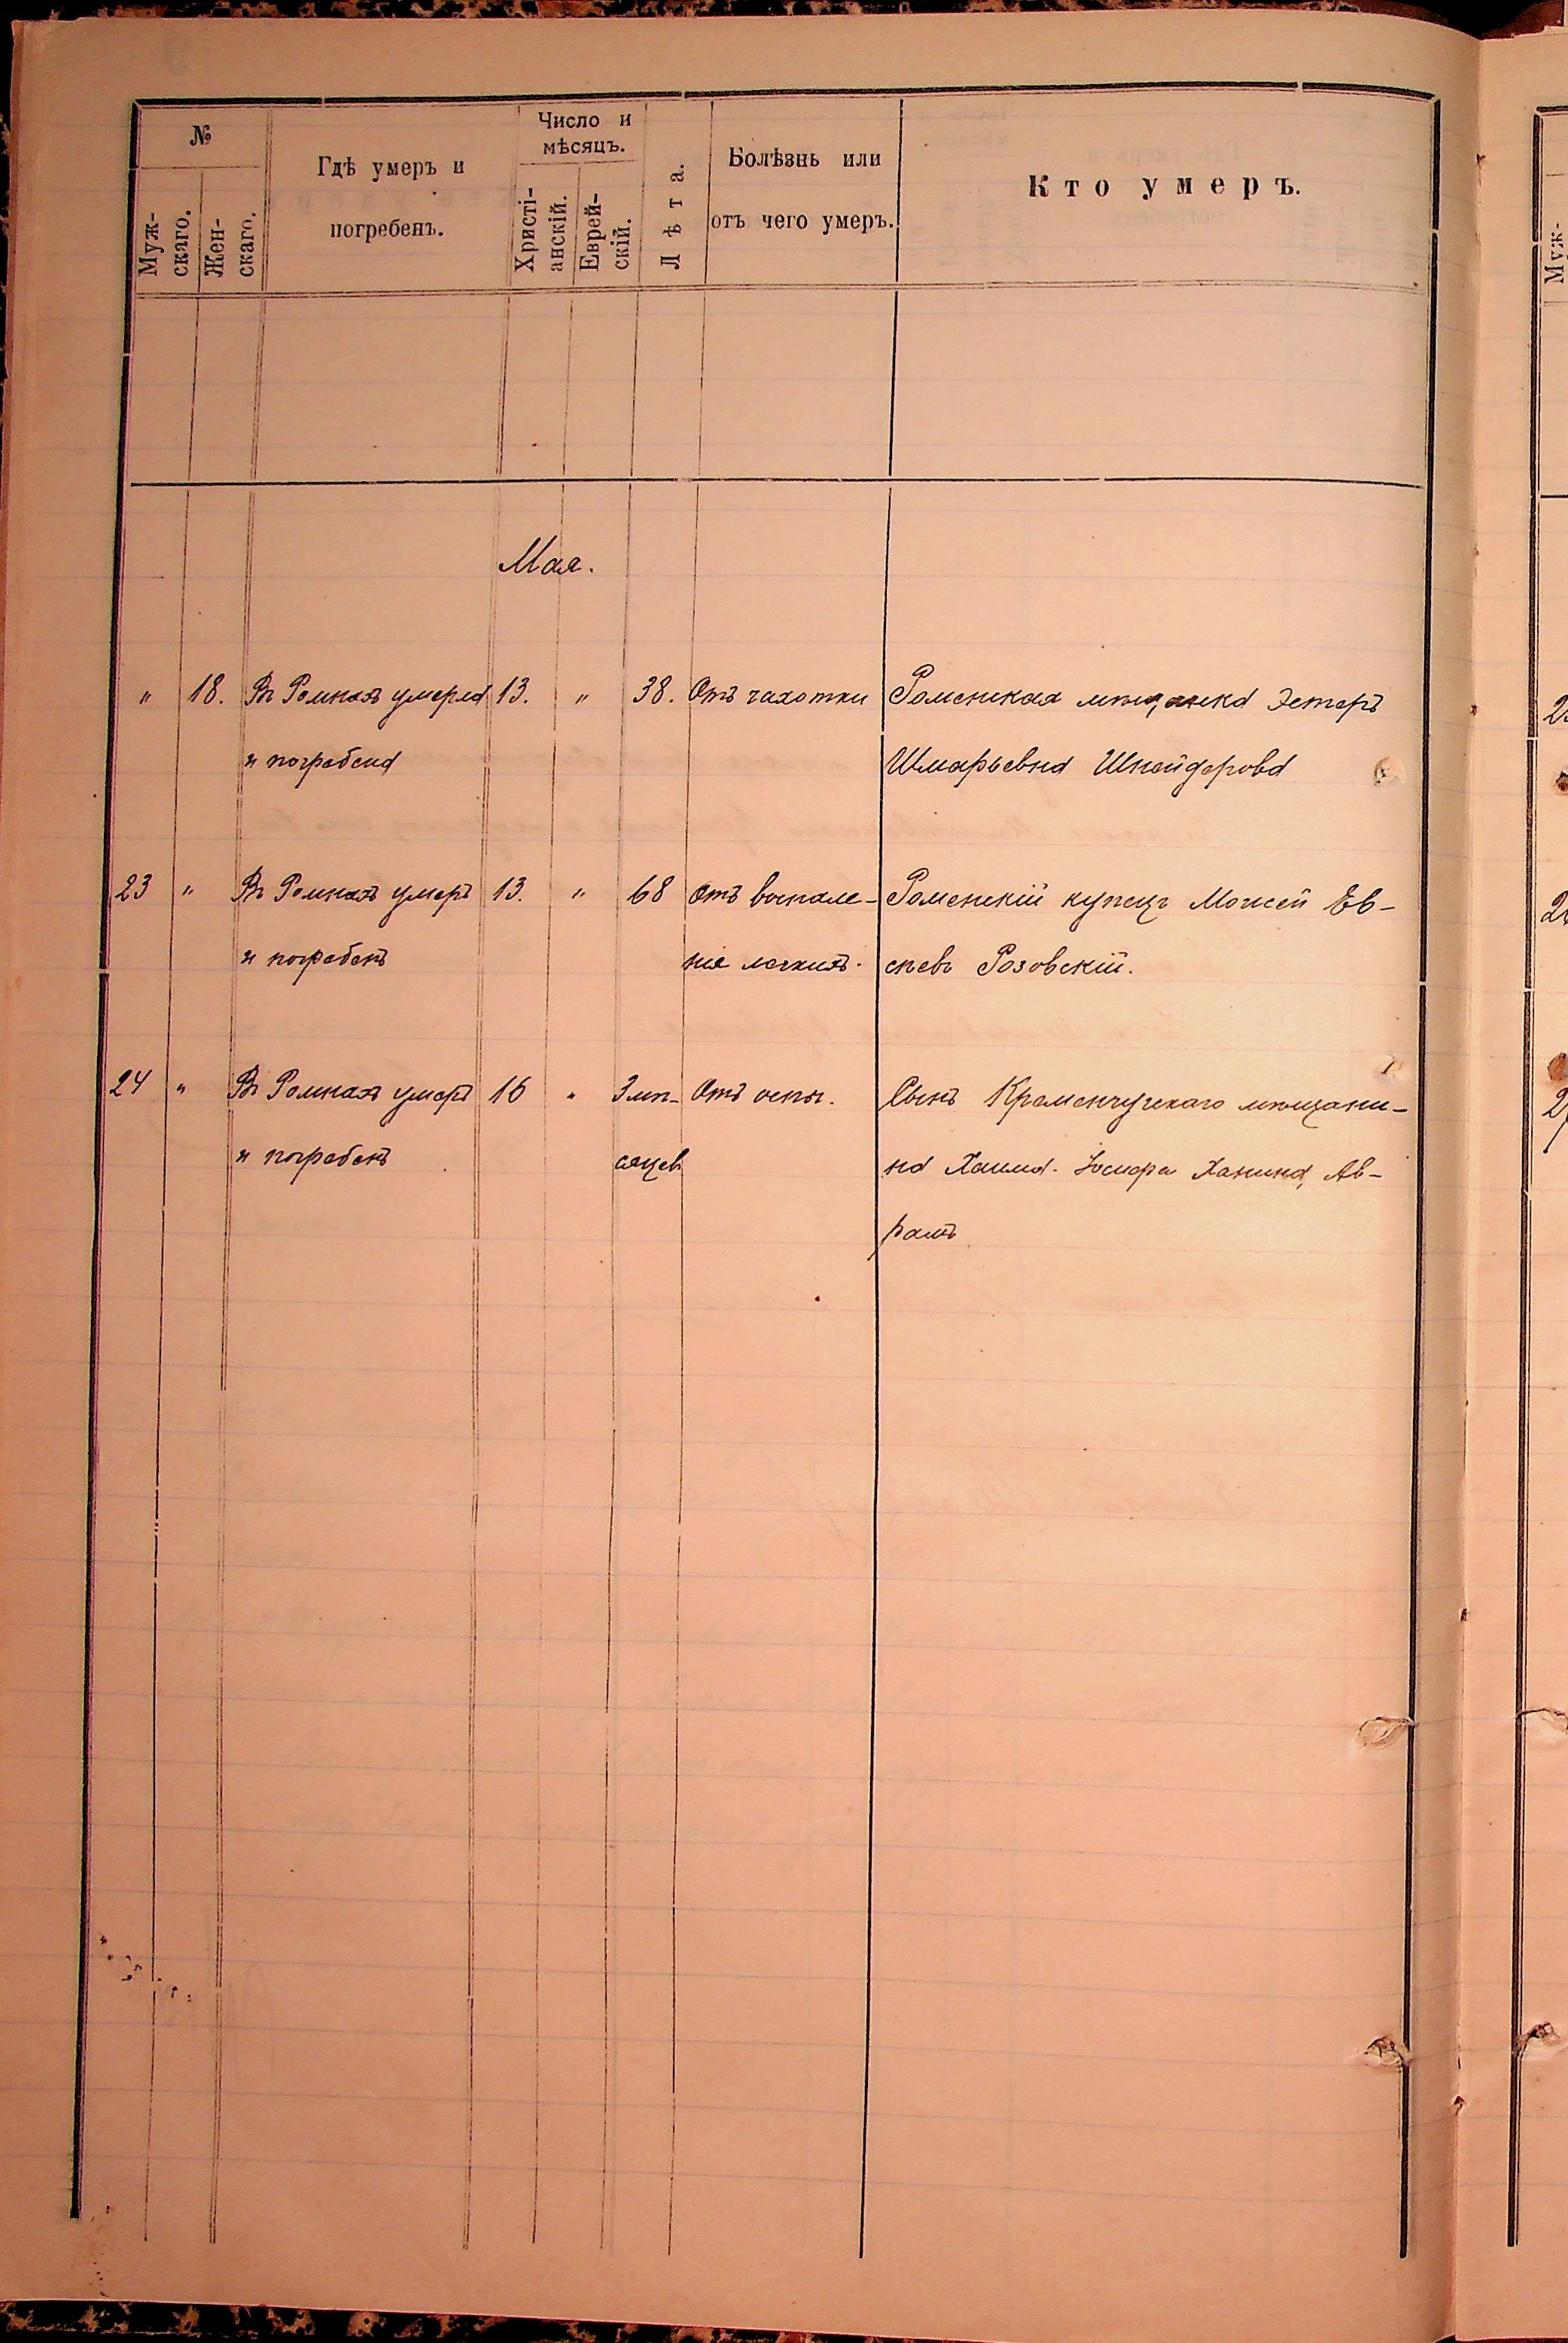 №
Муж-
скаго.
Жен-
скаго.
Гдѣ умеръ и
погребенъ.
Число и
мѣсяцъ.
Христі-
анскій.
Еврей-
скій.
Лѣта.
Болѣзнь или
отъ чего умеръ.
Кто умеръ.
Мая.
" 18. Въ Ромнахъ умерла 13. " 38. Отъ чахотки Роменская мѣщанка Эстеръ
и погребена Шмарьевна Шнейдерова
23 " Въ Ромнахъ умеръ 13. " 68 Отъ воспале- Роменскій купецъ Моисей Ев-
и погребенъ нія легкихъ. сѣевъ Розовскій.
24 " Въ Ромнахъ умеръ 16 " 3 мѣ- Отъ оспы. Сынъ Кременчугскаго мѣщани-
и погребенъ сяцев на Хаима-Іосифа Ханина, Ав-
рамъ
Муж-